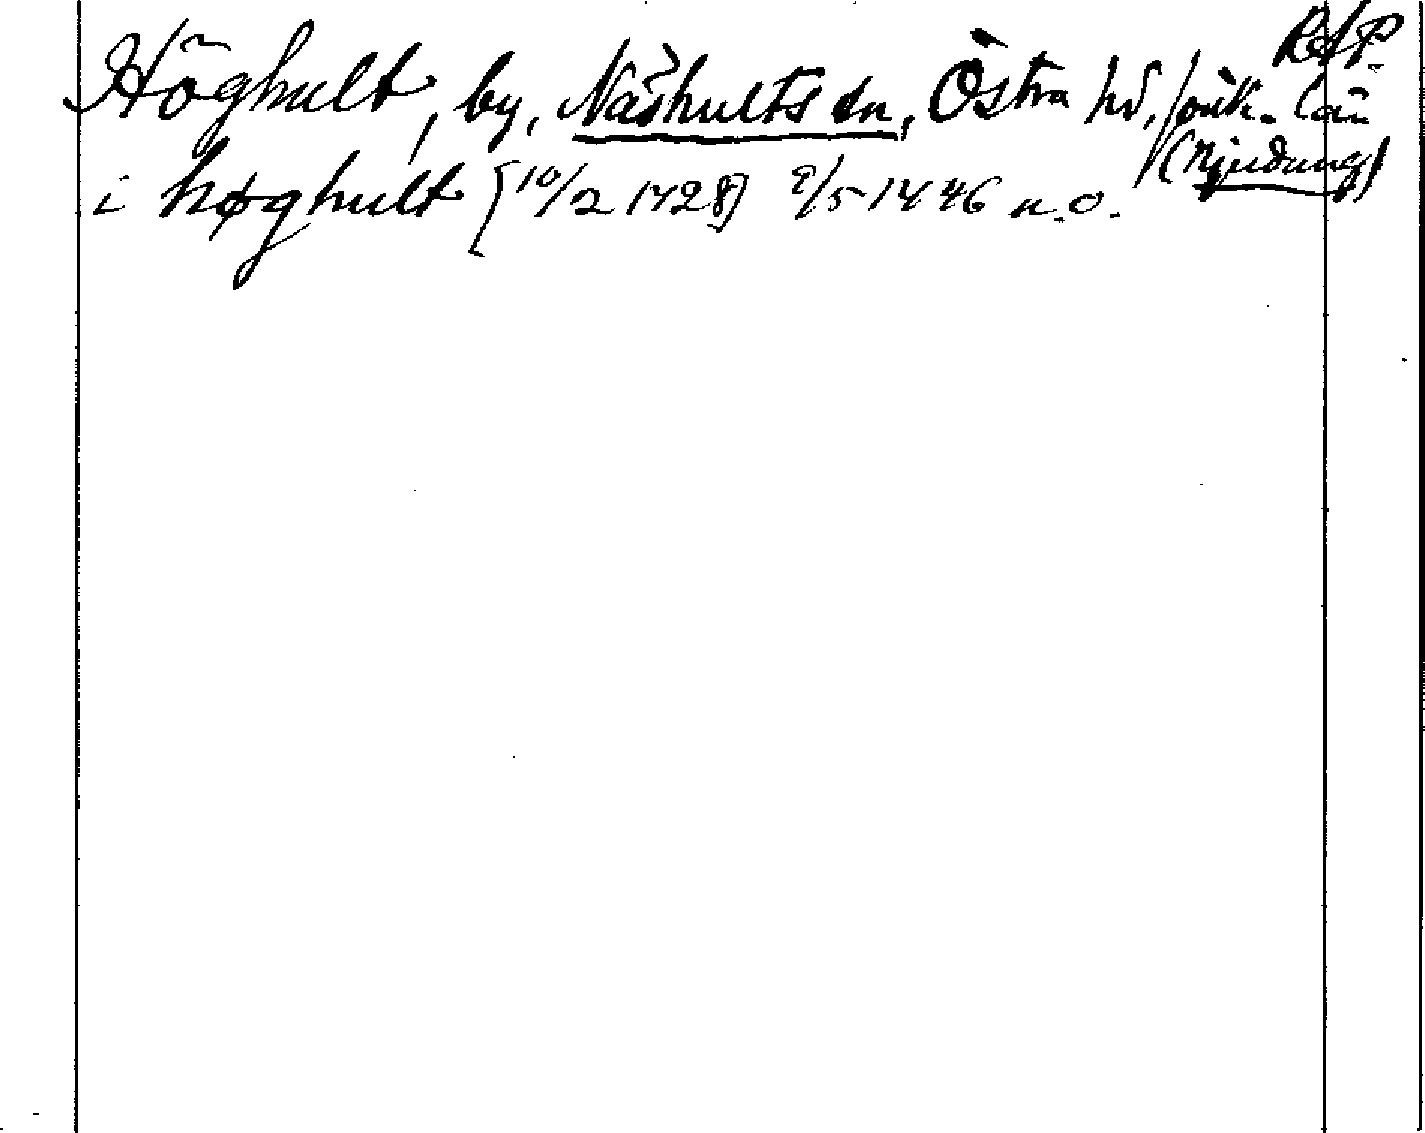 RAP.
Höghult, by, Näshults sn, Östra hd, Jönk. län
(Njudung)
i høghult [10/2 1428] 2/5 1446 n.o.